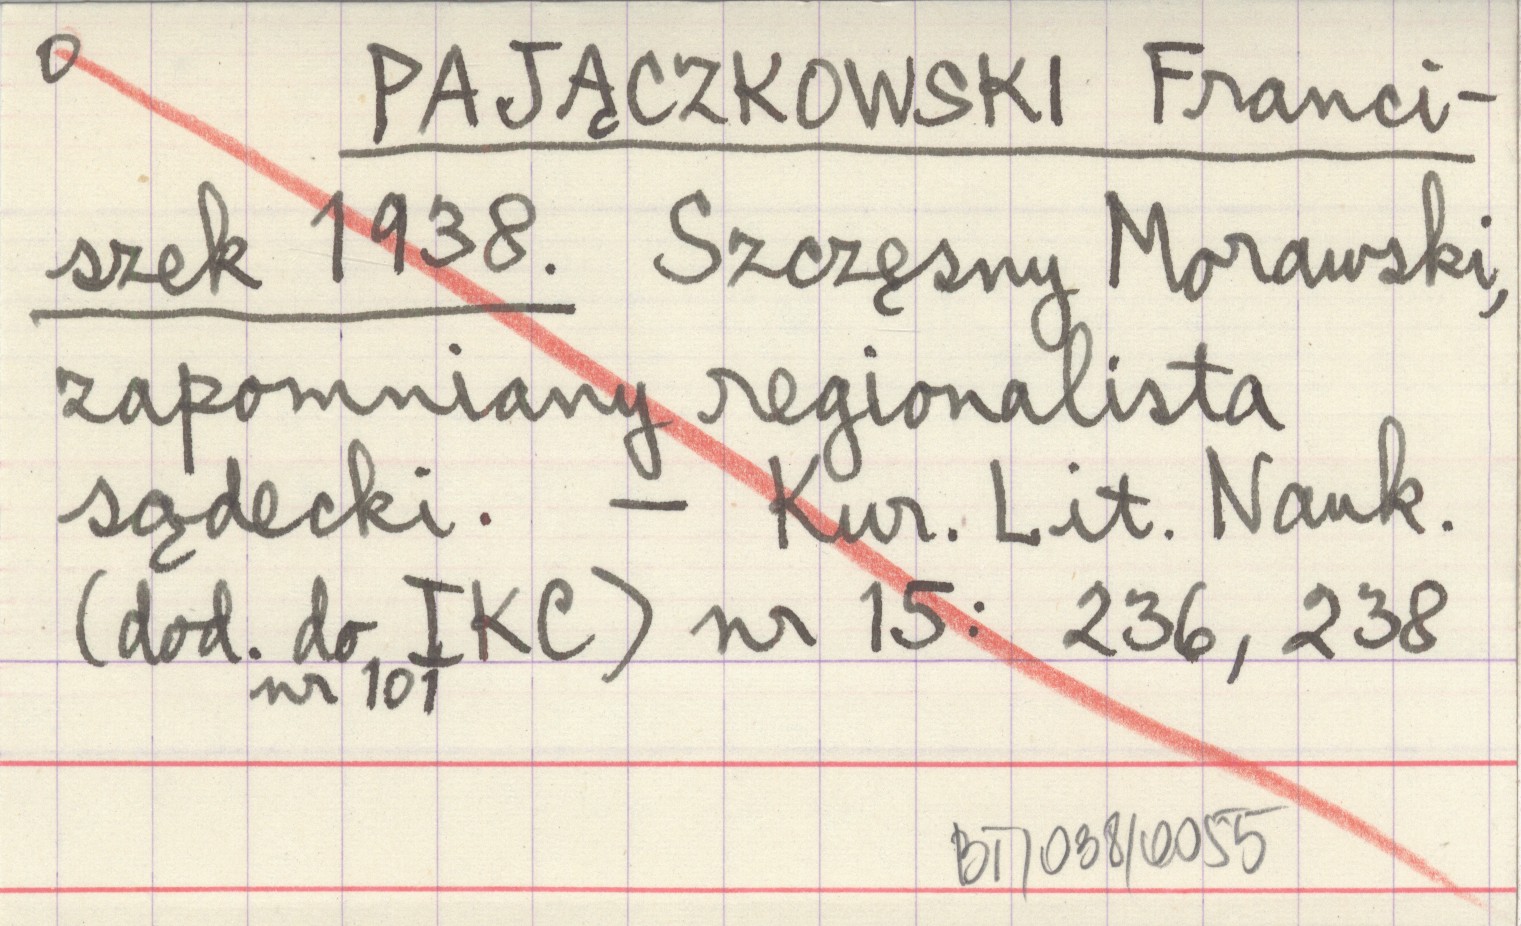 O
PAJĄCZKOWSKI Franci-
szek 1938. Szczęsny Morawski,
zapomniany regionalista
sądecki. — Kur. Lit. Nauk.
(dod. do IKC) nr 15: 236, 238
nr 101
BT/038/0055